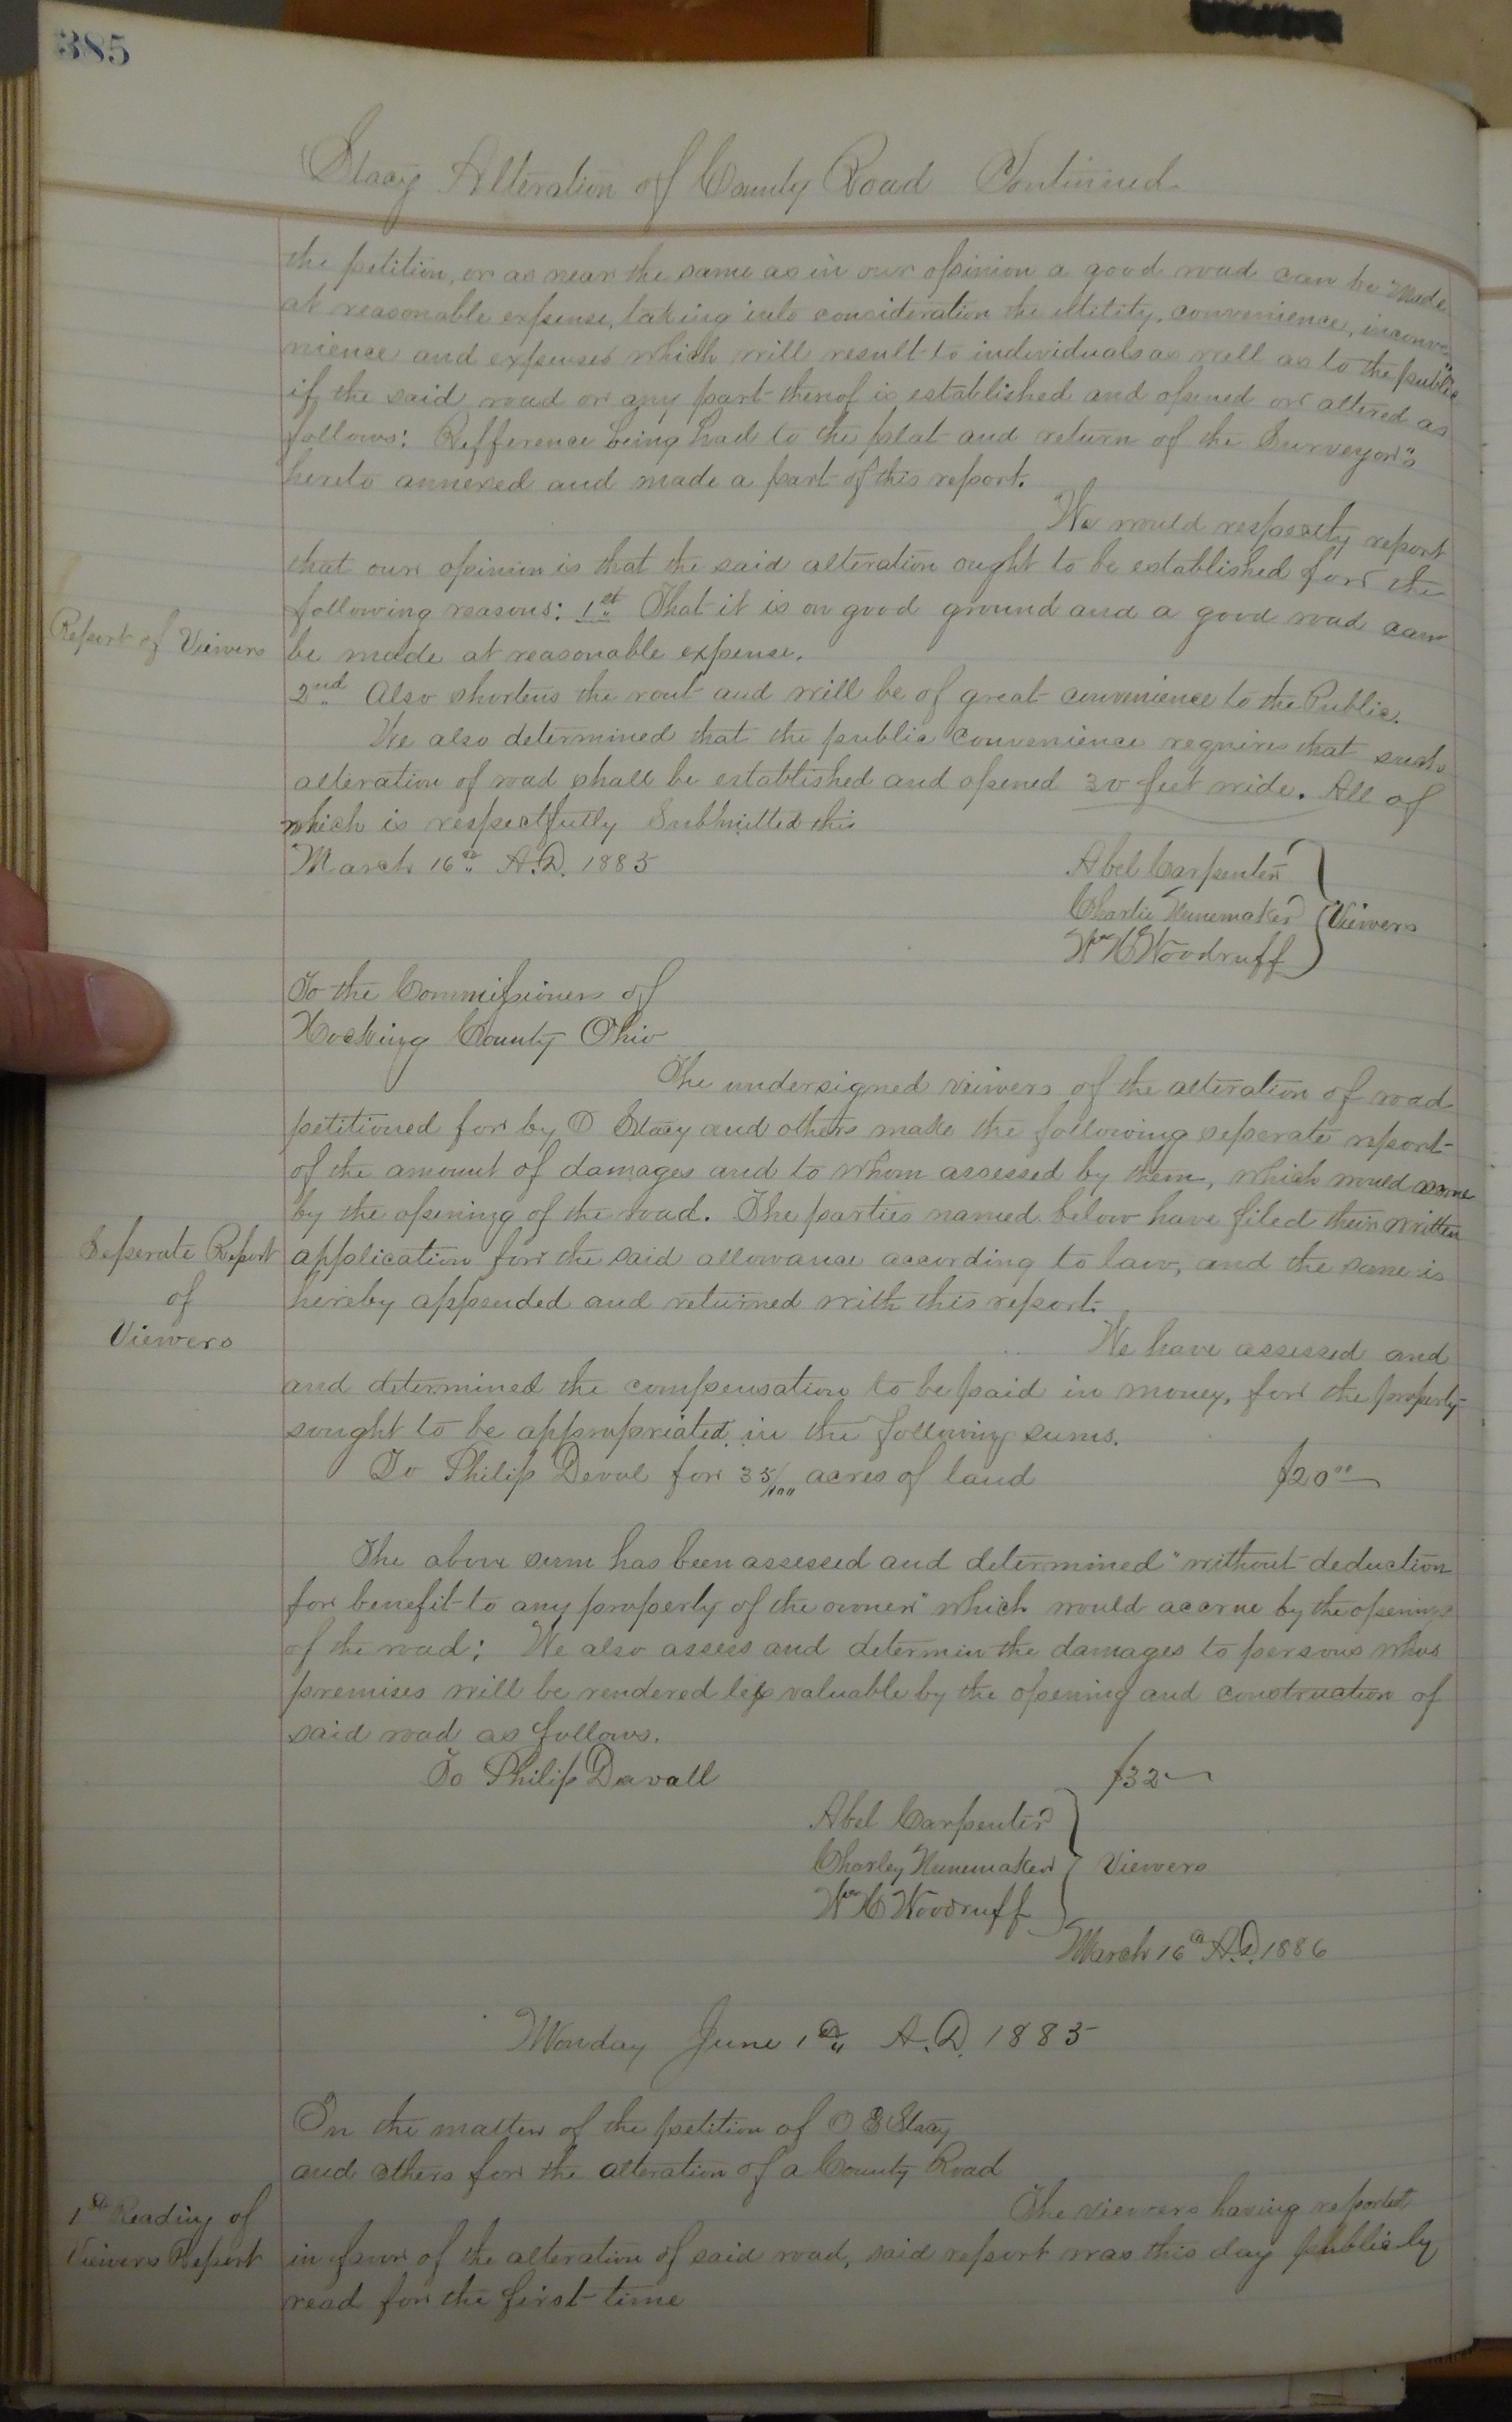 385
Stacy Alteration of County Road Continued
the petition, or as near the same as in our opinion a good road can be made
at reasonable expense, taking into consideration the utility, convenience, inconve-
nience and expenses which will result to individuals as well as to the public
if the said road or any part thereof is established and opened or altered as
follows: Refference being had to the plat and return of the Surveyor's
hereto annexed and made a part of this report.
We would respectly report
that our opinion is that the said alteration ought to be established for the
following reasons: 1st That it is on good ground and a good road can
Report of Viewers
be made at reasonable expense.
2nd Also shortens the rout and will be of great convenience to the Public.
We also determined that the public convenience requires that such
alteration of road shall be established and opened 30 feet wide. All of
which is respectfully Submitted this
March 16th A.D. 1885
Abel Carpenter
Charlie Nunemaker
Viewers
Wm H Woodruff
To the Commissioners of
Hocking County Ohio
The undersigned viewers of the alteration of road
petitioned for by O Stacy and others make the following seperate report
of the amount of damages and to whom assessed by them, which would
by the opening of the road. The parties named below have filed their written
Seperate Report
of
Viewers
application for the said allowance according to law, and the same is
hereby appended and returned with this report.
We have assessed and
and determined the compensation to be paid in money, for the property
sought to be appropriated in the following sums.
To Philip Devol for 35/100 acres of land $20 00
The above sum has been assessed and determined "without deduction
for benefit to any property of the owner" which would accrue by the opening
of the road: We also assess and determin the damages to persons whos
premises will be rendered less valuable by the opening and construction of
said road as follows.
To Philip Davall $32
Abel Carpenter
Charley Nunemaker
Viewers
Wm H Woodruff
March 16th A.D. 1886
Monday June 1st A.D. 1885
In the matter of the petition of O S Stacy
and others for the alteration of a County Road
The viewers having reported
1st Reading of
Viewers Report
in favor of the alteration of said road, said report was this day publicly
read for the first time